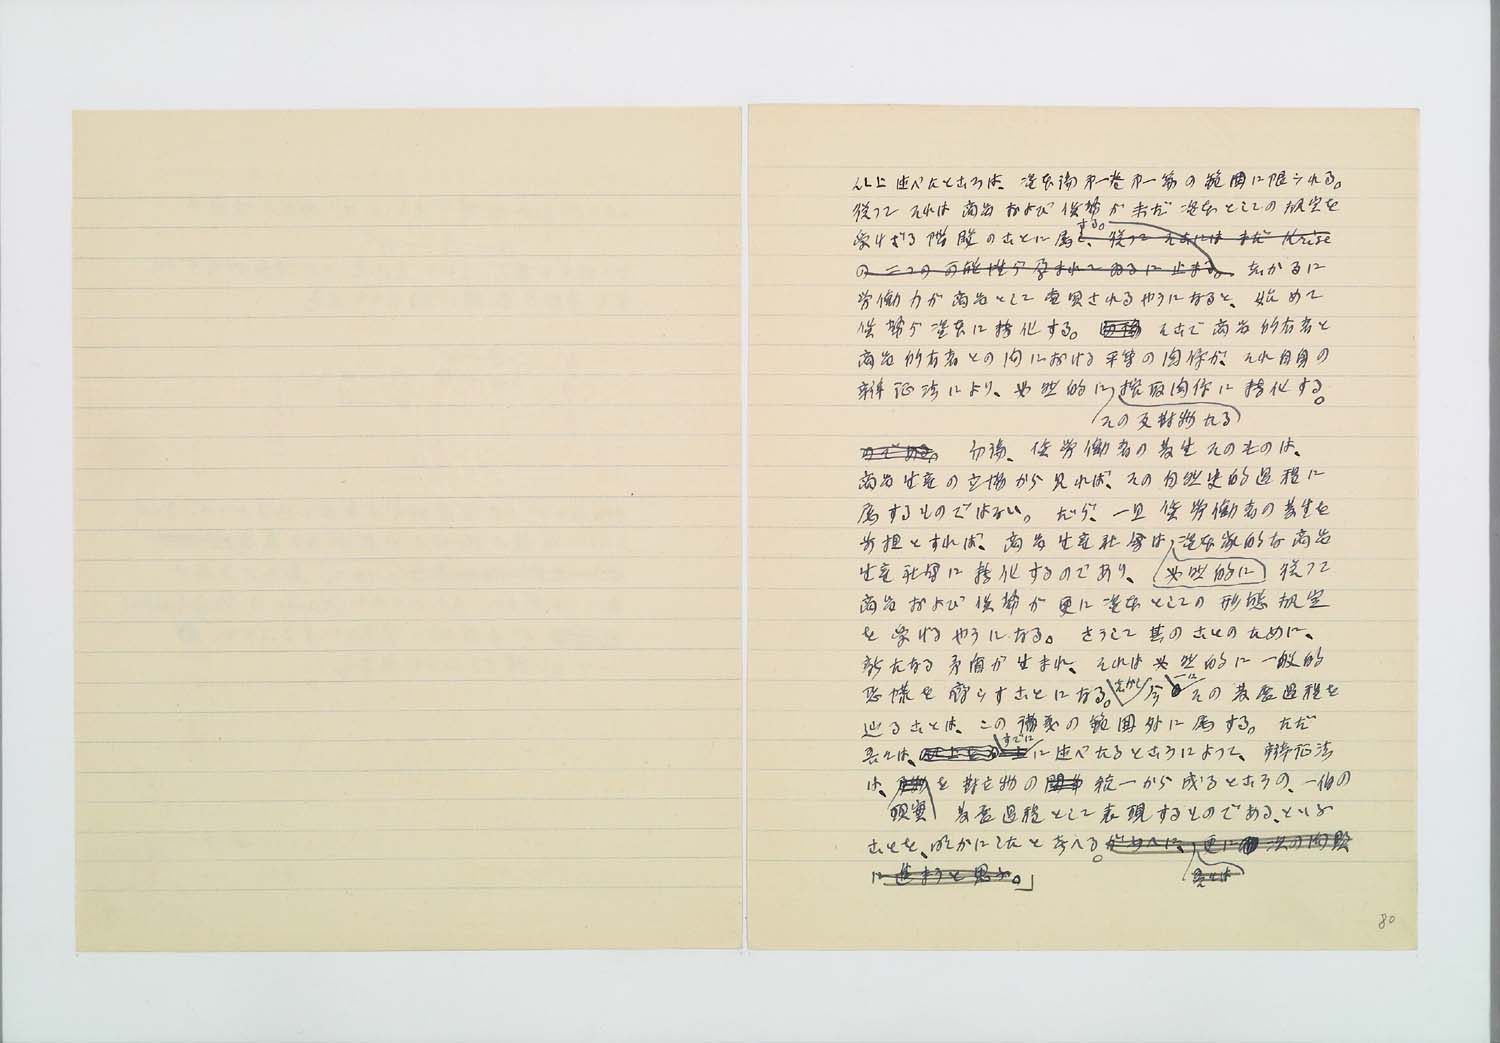 以上述べたところは、資本論第一巻第一篇の範囲に限られる。
従つてそれは商品および貨幣が未だ資本としての規定を
受けざる階段のことに属する。従つてそこにはまだ Krise
の二つの可能性が孕まれてゐるに止まる。しかるに
労働力が商品として売買されるやうになると、始めて
貨幣が資本に転化する。そこで商品所有者と
商品所有者との間における平等の関係が、それ自身の
辯証法により、必然的に搾取関係に転化する。
その反対物たる
のである。勿論、賃労働者の発生そのものは、
商品生産の立場から見れば、その自然史的過程に
属するものではない。だが、一旦賃労働者の発生を
前提とすれば、商品生産社会は、資本家的な商品
生産社会に転化するのであり、必然的に 従つて
商品および貨幣が更に資本としての形態規定
を受けるやうになる。さうして其のことのために、
新たなる矛盾が生まれ、それは必然的に一般的
恐慌を齎らすことになる。しかし今一々その発展過程を
辿ることは、この講義の範囲外に属する。ただ
吾々は、すでに述べたるところによつて、辯証法
は、を対立物の統一から成るところの、一個の
現実 発展過程として表現するものである、といふ
ことを、明かにしたと考へる。更に次の問題
に進まうと思ふ。」
80